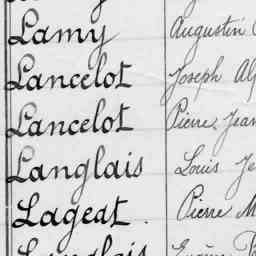 Lamy Augustin
Lancelot Joseph
Lancelot Pierre Jean
Langlais Louis
Lageat. Pierre
Langlais